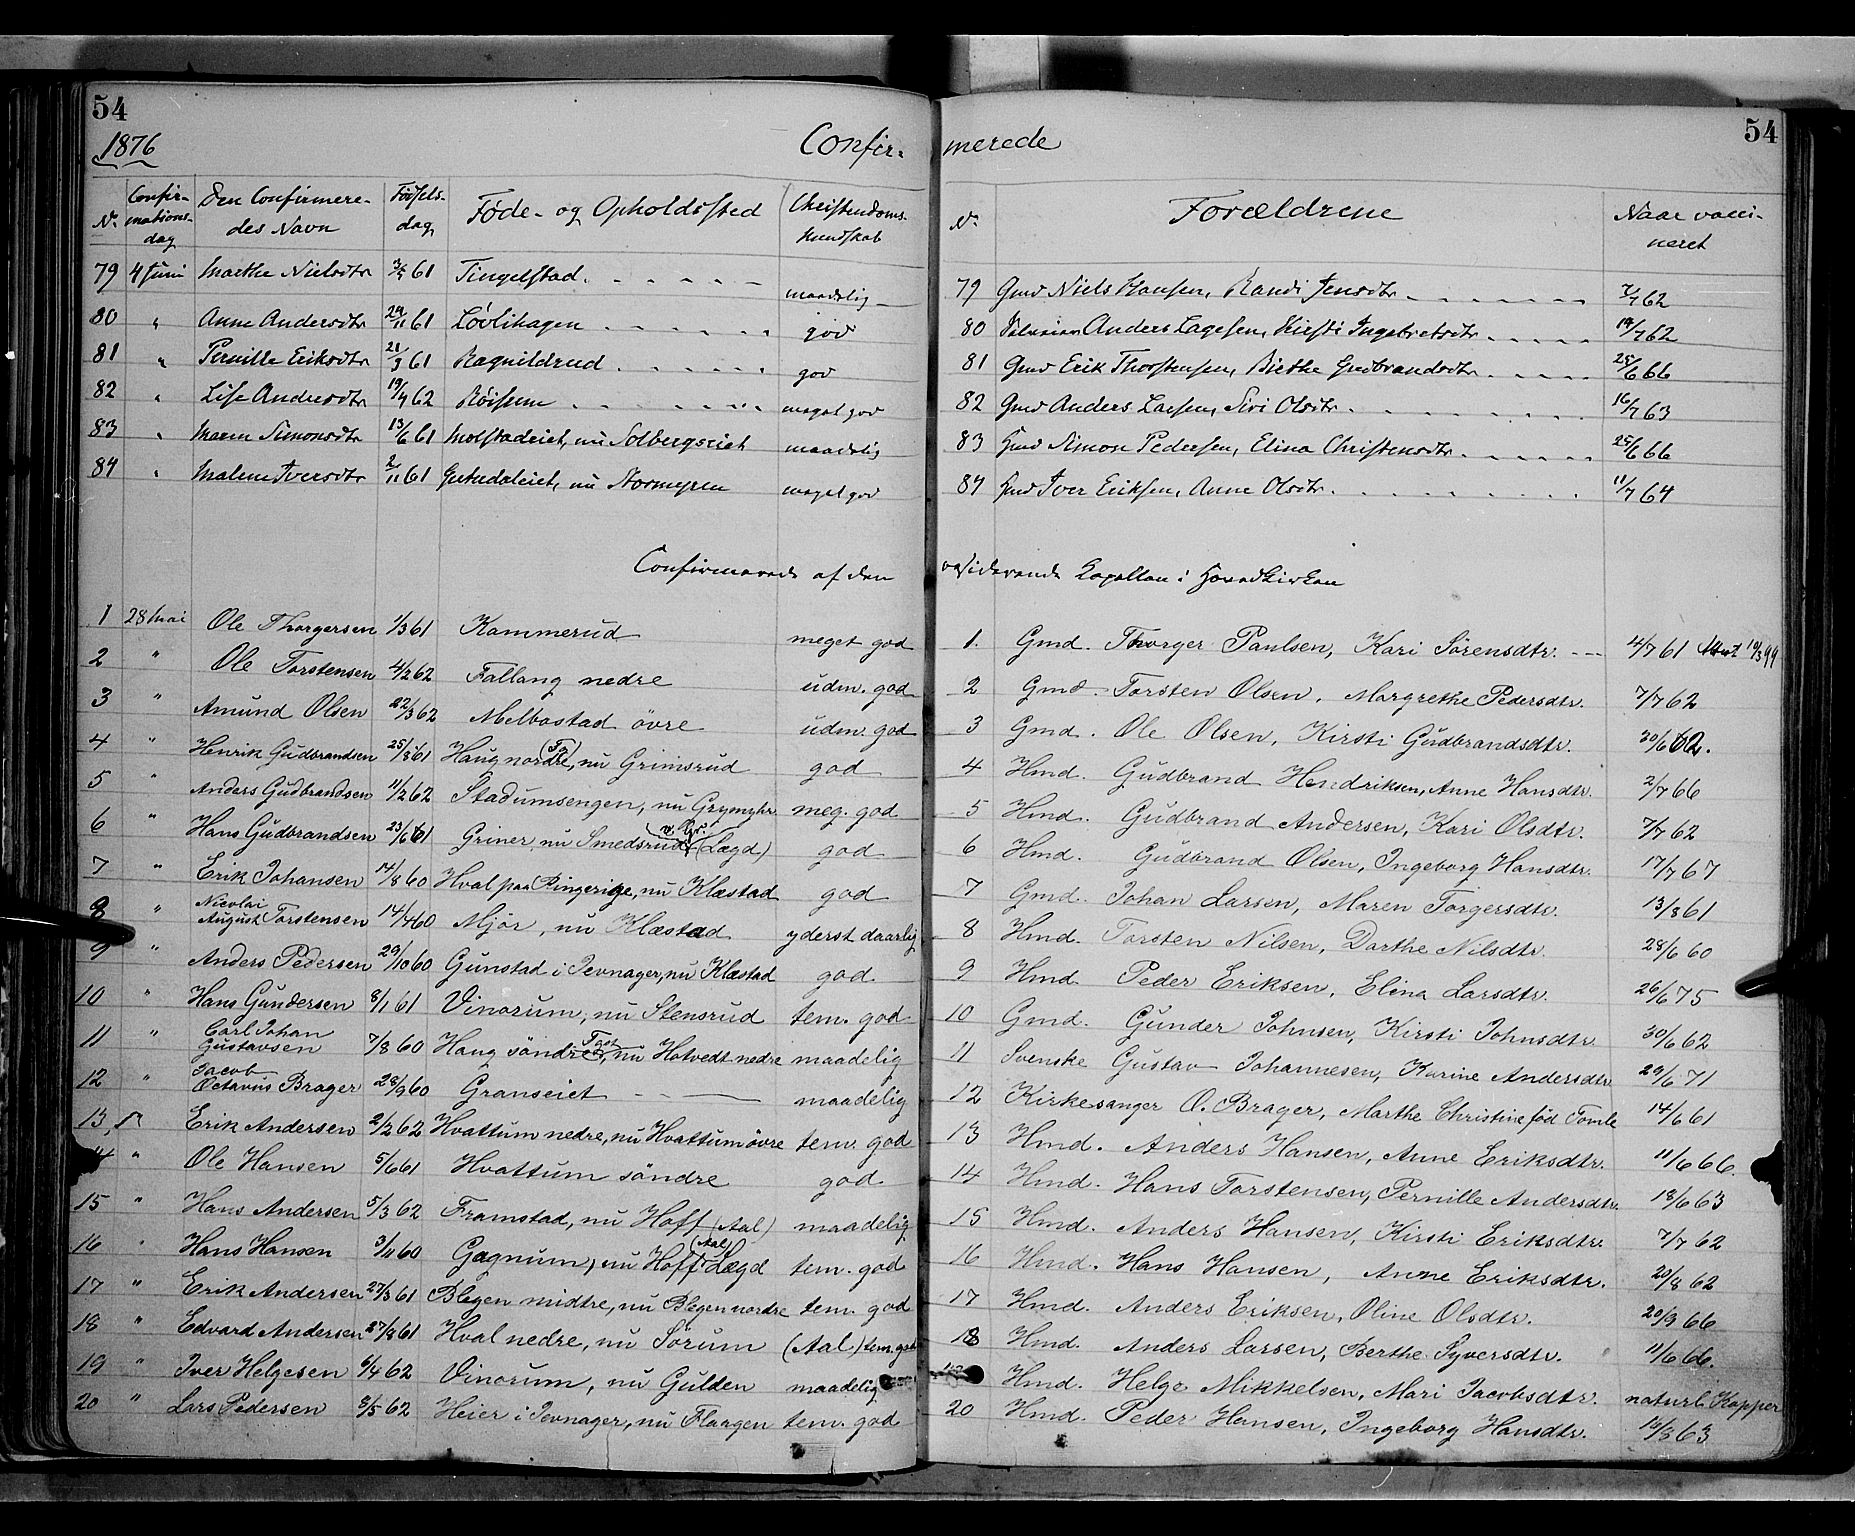 54
1876
Confir-
No. Confirmationsdag Den Confirmeredes Navn Fødselsdag Føde- og Opholdssted Christendomskundskab
79 4 Juni Marthe Nielsdtr 61 Tingelstad maadelig
80 " Anne Andersdtr 29/11 61 Løvlihagen god
81 " Pernille Eriksdtr 21/3 61 Ragnildrud god
82 " Lise Andersdtr 19/4 62 Røissum meget god
83 " Maren Simonsdtr 13/6 61 Molstadeiet, nu Solbergseiet maadelig
84 " Malene Iversdtr 2/11 61 nu Stormyren meget god
Confirmerede af den
1 28 Mai Ole Thorgersen 1/3 61 Kammerud meget god
2 " Ole Torstensen 4/2 62 Fallang nedre udm. god
3 " Amund Olsen 22/3 62 Melbostad øvre udm. god
4 " Henrik Gudbrandsen 25/8 61 Haug nordre, nu Grimsrud god
5 " Anders Gudbrandsen 11/2 62 Stadumsengen, nu Grymyhr meg. god
6 " Hans Gudbrandsen 23/6 61 Griner, nu Smedsrud (Lægd) god
7 " Erik Johansen 14/8 60 Hval paa Ringerige, nu Klæstad god
8 " Nicolai August Torstensen 14/4 60 Mjør, nu Klæstad yderst daarlig
9 " Anders Pedersen 29/10 60 Gunstad i Jevnager, nu Klæstad god
10 " Hans Gundersen 8/1 61 Vinorum, nu Stensrud tem. god
11 " Carl Johan Gustavsen 7/8 60 Haug søndre, nu Hotvedt nedre maadelig
12 " Jacob Octavius Brager 28/9 60 Granseiet maadelig
13 Erik Andersen 2/2 62 Hvattum nedre, nu Hvattum øvre tem. god
14 " Ole Hansen 5/6 61 Hvattum søndre god
15 " Hans Andersen 5/3 62 Framstad, nu Hoff (Aal) maadelig
16 " Hans Hansen 3/11 60 Gagnum, nu Hoff (Aal) Lægd tem. god
17 " Erik Andersen 27/3 61 Blegen midtre, nu Blegen nordre tem. god
18 " Edvard Andersen 27/8 61 Hval nedre, nu Sørum (Aal) tem. god
19 " Iver Helgesen 6/4 62 Vinorum, nu Gulden maadelig
20 " Lars Pedersen 8/5 62 Heier i Jevnager, nu Flaagen tem. god
merede
54
No. Forældrene Naar vaccineret
79 Gmd Niels Hansen, Randi Jensdtr 62
80 Anders Lagesen, Kirsti Ingebretsdtr 19/7 62
81 Gmd Erik Thorstensen, Birthe Gudbrandsdtr 25/6 66
82 Gmd Anders Larsen, Siri Olsdtr 16/7 63
83 Hmd Simon Pedersen, Elina Christensdtr 25/6 66
84 Hmd Iver Eriksen, Anne Olsdtr 11/7 64
residerende Capellan i Hovedkirken
1. Gmd. Thorger Paulsen, Kari Sørensdtr. 4/7 61
2 Gmd. Torsten Olsen, Margrethe Pedersdtr. 7/7 62
3 Gmd. Ole Olsen, Kirsti Gudbrandsdtr. 30/6 62.
4 Hmd. Gudbrand Hendriksen, Anne Hansdtr. 2/7 66
5 Hmd. Gudbrand Andersen, Kari Olsdtr. 7/7 62
6 Hmd. Gudbrand Olsen, Ingeborg Hansdtr. 17/7 67
7 Gmd. Johan Larsen, Maren Torgersdtr. 13/8 61
8 Hmd. Torsten Nilsen, Dorthe Nilsdtr. 28/6 60
9 Hmd. Peder Eriksen, Elina Larsdtr. 26/6 75
10 Gmd. Gunder Johnsen, Kirsti Johnsdtr. 30/6 62
11 Svenske Gustav Johannesen, Karine Andersdtr 29/6 71
12 Kirkesanger O. Brager, Marthe Christine fød Tomle 14/6 61
13 Hmd. Anders Hansen, Anne Eriksdtr. 11/6 66.
14 Hmd. Hans Torstensen, Pernille Andersdtr. 18/6 63
15 Hmd. Anders Hansen, Kirsti Eriksdtr. 7/7 62
16 Hmd. Hans Hansen, Anne Eriksdtr. 20/8 62
17 Hmd. Anders Eriksen, Oline Olsdtr. 20/9 66
18 Hmd. Anders Larsen, Berthe Syversdtr. 11/6 66.
Hmd. Helge Mikkelsen, Mari Jacobsdtr. naturl. Kopper
20 Hmd. Peder Hansen, Ingeborg Hansdtr. 14/8 63